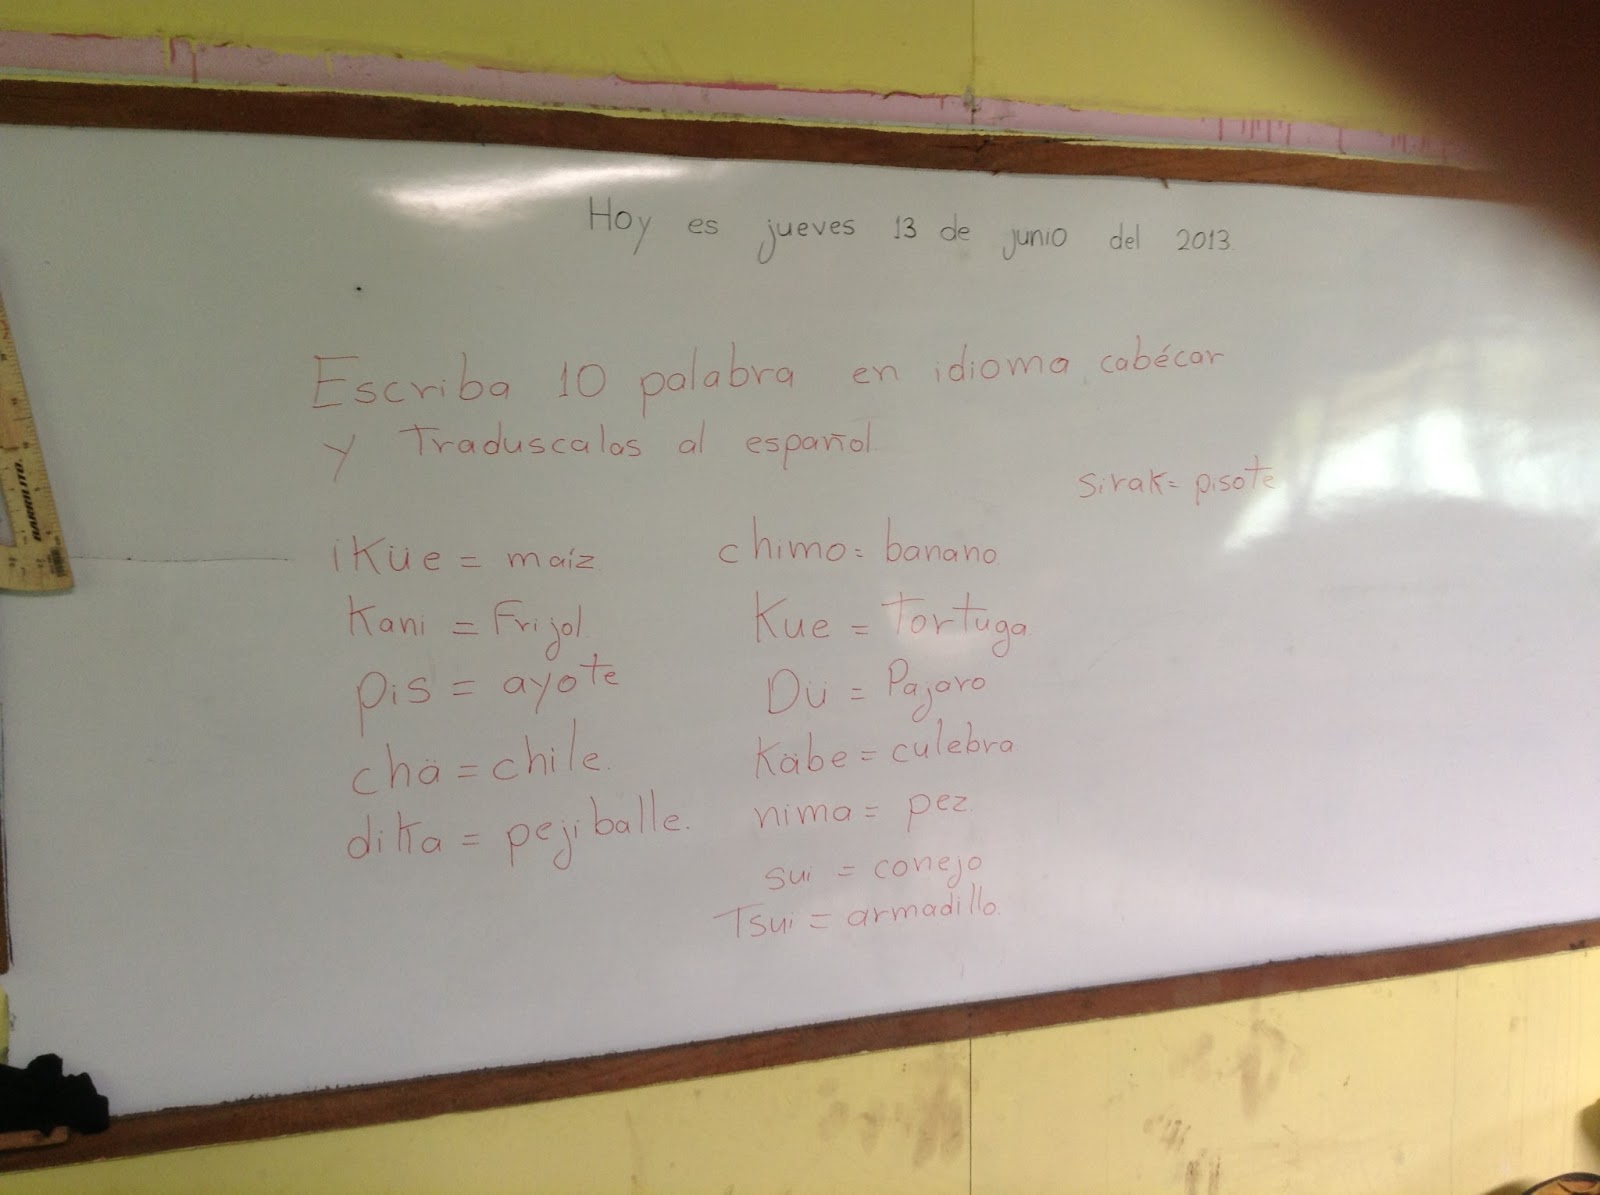 Hoy es jueves 13 de junio del 2013.
Escriba 10 palabra en idioma cabécar
y Traduscalos al español.
sirak = pisote
iKüe = maíz
Kani = Frijol.
pis = ayote
chä = chile.
diKa = pejiballe.
chimo = banano.
Kue = Tortuga.
Dü = Pajaro
Käbe = culebra
nima = pez.
sui = conejo
Tsui = armadillo.
BARRILITO.